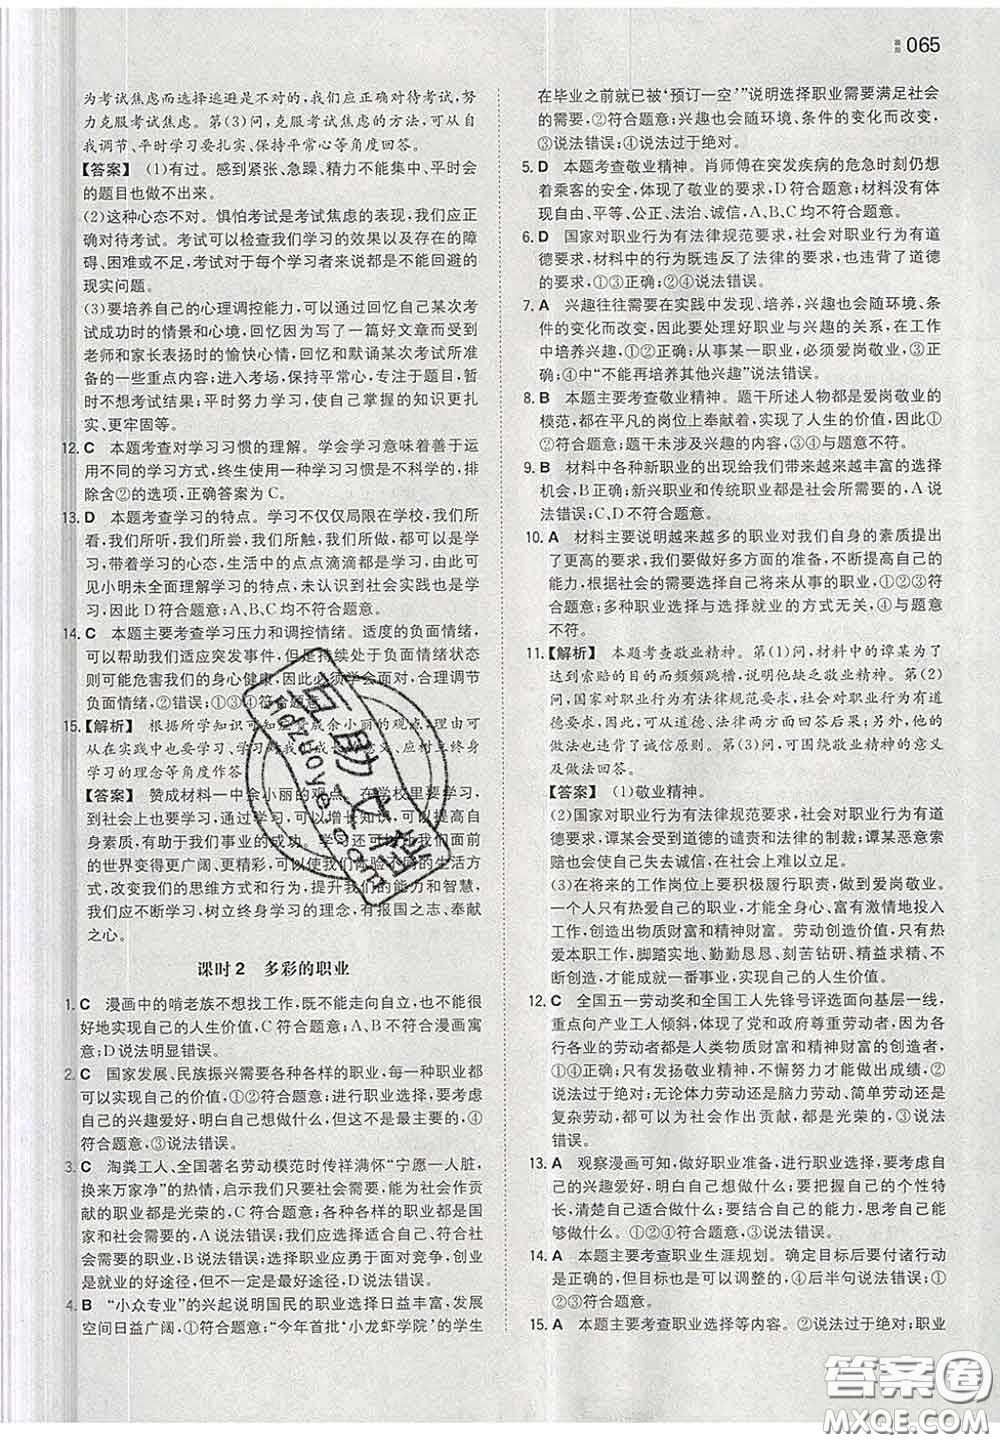 065
为考试焦虑而选择逃避是不对的,我们应正确对待考试,努
力克服考试焦虑。第(3)问,克服考试焦虑的方法,可从自
我调节、平时学习要扎实、保持平常心等角度回答。
【答案】 (1)有过。感到紧张、急躁、精力不能集中、平时会
的题目也做不出来。
(2)这种心态不对。惧怕考试是考试焦虑的表现,我们应正
确对待考试。考试可以检查我们学习的效果以及存在的障
碍、困难或不足,考试对于每个学习者来说都是不能回避的
现实问题。
(3)要培养自己的心理调控能力,可以通过回忆自己某次考
试成功时的情景和心境,回忆因为写了一篇好文章而受到
老师和家长表扬时的愉快心情、回忆和默诵某次考试所准
备的一些重点内容;进入考场,保持平常心,专注于题目,
暂时不想考试结果;平时努力学习,使自己掌握的知识更扎
实、更牢固等。
12. C 本题考查对学习习惯的理解。学会学习意味着善于运
用不同的学习方式,终生使用一种学习习惯是不科学的,排
除含②的选项,正确答案为C。
13. D 本题考查学习的特点。学习不仅仅局限在学校,我们所
看,我们所听,我们所尝,我们所触,我们所做,都可以是学习。
带着学习的心态,生活中的点点滴滴都是学习的内容,由此可
见小明未全面理解学习的特点,未认识到社会实践也是学
习,因此D符合题意;A、B、C均不符合题意。
14. C 本题主要考查学习压力和调控情绪。适度的负面情绪,
可以帮助我们适应突发事件,但是持续处于负面情绪状态
则可能危害我们的身心健康,因此必须学会面对,合理调节
负面情绪,②错误;①③④符合题意。
15. 【解析】 根据所学知识可知要赞成余小丽的观点;理由可
从在实践中也要学习、学习对我们成长的意义、应树立终身
学习的理念等角度作答。
【答案】 赞成材料一中余小丽的观点。在学校里要学习,
到社会上也要学习,通过学习,可以增长知识,可以提高自
身素质,有助于我们事业的成功。学习还可以让我们面前
的世界变得更广阔、更精彩,可以使我们体验不同的生活方
式,改变我们的思维方式和行为,提升我们的能力和智慧,
我们应不断学习,树立终身学习的理念,有报国之志、奉献
之心。
课时2 多彩的职业
1. C 漫画中的啃老族不想找工作,既不能走向自立,也不能很
好地实现自己的人生价值,C符合题意;A、B不符合漫画寓
意;D说法明显错误。
2. C 国家发展、民族振兴需要各种各样的职业,每一种职业都
可以实现自己的价值,①②符合题意;进行职业选择,要考虑
自己的兴趣爱好,明白自己想做什么,但这不是最主要的,④
符合题意,③说法错误。
3. C 淘粪工人、全国著名劳动模范时传祥满怀“宁愿一人脏,
换来万家净”的热情,启示我们只要社会需要,能为社会作贡
献的职业都是光荣的,C符合题意;各种各样的职业都是国
家和社会需要的,A说法错误;我们应选择自己喜欢、符合社
会需要的职业,B说法错误;选择职业应勇于面对竞争,创业
是就业的好途径,但不一定是最好途径,D说法错误。
4. B “小众专业”的兴起说明国民的职业选择日益丰富,发展
空间日益广阔,①符合题意;“今年首批‘小龙虾学院’的学生
在毕业之前就已被‘预订一空’”说明选择职业需要满足社会
的需要,②符合题意;兴趣也会随环境、条件的变化而改变,
③说法错误;④说法过于绝对。
5. D 本题考查敬业精神。肖师傅在突发疾病的危急时刻仍想
着乘客的安全,体现了敬业的要求,D符合题意;材料没有体
现自由、平等、公正、法治、诚信,A、B、C均不符合题意。
6. D 国家对职业行为有法律规范要求,社会对职业行为有道
德要求,材料中的行为既违反了法律的要求,也违背了道德
的要求,①③正确;②④说法错误。
7. A 兴趣往往需要在实践中发现、培养,兴趣也会随环境、条
件的变化而改变,因此要处理好职业与兴趣的关系,在工作
中培养兴趣,①②正确;从事某一职业,必须爱岗敬业,③正
确;④中“不能再培养其他兴趣”说法错误。
8. B 本题主要考查敬业精神。题干所述人物都是爱岗敬业的
模范,都在平凡的岗位上奉献着,实现了人生的价值,因此①
②符合题意;题干未涉及兴趣的内容,③④与题意不符。
9. B 材料中各种新职业的出现给我们带来越来越丰富的选择
机会,B正确;新兴职业和传统职业都是社会所需要的,A说
法错误;C、D不符合题意。
10. A 材料主要说明越来越多的职业对我们自身的素质提出
了更高的要求,我们要做好多方面的准备,不断提高自己的
能力,根据社会的需要选择自己将来从事的职业,①②③符
合题意;多种职业与选择就业的方式无关,④与题意
不符。
11. 【解析】 本题考查敬业精神。第(1)问,材料中的谭某为了
达到索赔的目的而频频跳槽,说明他缺乏敬业精神。第(2)
问,国家对职业行为有法律规范要求,社会对职业行为有道
德要求,可以从道德、法律两方面回答后果;另外,他的
做法也违背了诚信原则。第(3)问,可围绕敬业精神的意义
及做法回答。
【答案】 (1)敬业精神。
(2)国家对职业行为有法律规范要求,社会对职业行为有道
德要求,谭某会受到道德的谴责和法律的制裁;谭某恶意索
赔也会使自己失去诚信,在社会上难以立足。
(3)在将来的工作岗位上要积极履行职责,做到爱岗敬业。
一个人只有热爱自己的职业,才能全身心、富有激情地投入
工作,创造出物质财富和精神财富。劳动创造价值,只有热
爱本职工作,脚踏实地、勤勤恳恳、刻苦钻研、精益求精、不断
进步,才能成就一番事业,实现自己的人生价值。
12. C 全国五一劳动奖和全国工人先锋号评选面向基层一线,
重点向产业工人倾斜,体现了党和政府尊重劳动者,因为各
行各业的劳动者都是人类物质财富和精神财富的创造者,
①④正确;只有发扬敬业精神,不懈努力才能做出成绩,②
说法过于绝对;无论体力劳动还是脑力劳动、简单劳动还是
复杂劳动,都可以为社会作出贡献,都是光荣的,③说法
错误。
13. A 观察漫画可知,做好职业准备,进行职业选择,要考虑自
己的兴趣爱好,明白自己想做什么;要把握自己的个性特
长,清楚自己适合做什么;要结合自己的能力,思考自己能
够做什么。①②④符合题意,③说法错误。
14. A 本题主要考查职业生涯规划。确定目标后要付诸行动
是正确的,但目标也是可以调整的,④后半句说法错误;①
②③符合题意。
15. A 本题主要考查职业选择等内容。②说法过于绝对;职业
互助文档
Hdzuoye.com
答案圈
MXQE.COM